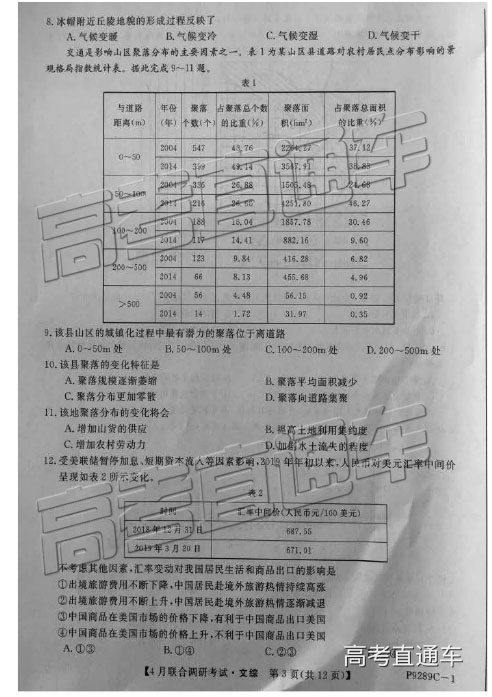 8. 冰帽附近丘陵地貌的形成过程反映了
A. 气候变暖 B. 气候变冷 C. 气候变湿 D. 气候变干
交通是影响山区聚落分布的主要因素之一。表1为某山区县道路对农村居民点分布影响的景
观格局指数统计表。据此完成9～11题。
表1
与道路 年份 聚落 占聚落总个数 聚落面 占聚落总面积
距离(m) (年) 个数(个) 的比重(%) 积(hm²) 的比重(%)
0～50 2004 547 43.76 2264.27 37.12
2014 399 49.14 3547.91 38.83
50～100 2004 336 26.88 1505.48 24.68
2014 216 26.60 4251.80 46.27
100～200 2004 188 15.04 1857.78 30.46
2014 117 14.41 882.16 9.60
200～500 2004 123 9.84 416.28 6.82
2014 66 8.13 455.68 4.96
>500 2004 56 4.48 56.15 0.92
2014 14 1.72 31.97 0.35
9. 该县山区的城镇化过程中最有潜力的聚落位于离道路
A. 0～50m 处 B. 50～100m 处 C. 100～200m 处 D. 200～500m 处
10. 该县聚落的变化特征是
A. 聚落规模逐渐萎缩 B. 聚落平均面积减少
C. 聚落分布更加零散 D. 聚落向道路集聚
11. 该地聚落分布的变化将会
A. 增加山货的供应 B. 提高土地利用集约度
C. 增加农村劳动力 D. 加剧水土流失的程度
12. 受美联储暂停加息、短期资本流入等因素影响,2019 年年初以来,人民币对美元汇率中间价
呈现如表2所示变化。
表2
时间 汇率中间价(人民币元/100 美元)
2018 年 12 月 31 日 687.55
2019 年 3 月 20 日 671.01
不考虑其他因素,汇率变动对我国居民生活和商品出口的影响是
①出境旅游费用不断下降,中国居民赴境外旅游热情持续高涨
②出境旅游费用不断上升,中国居民赴境外旅游热情逐渐减退
③中国商品在美国市场的价格下降,有利于中国商品出口美国
④中国商品在美国市场的价格上升,不利于中国商品出口美国
A. ①③ B. ①④ C. ②③
【4月联合调研考试·文综 第 3 页(共 12 页)】 P9289C—1
高考直通车
高考直通车
高考直通车